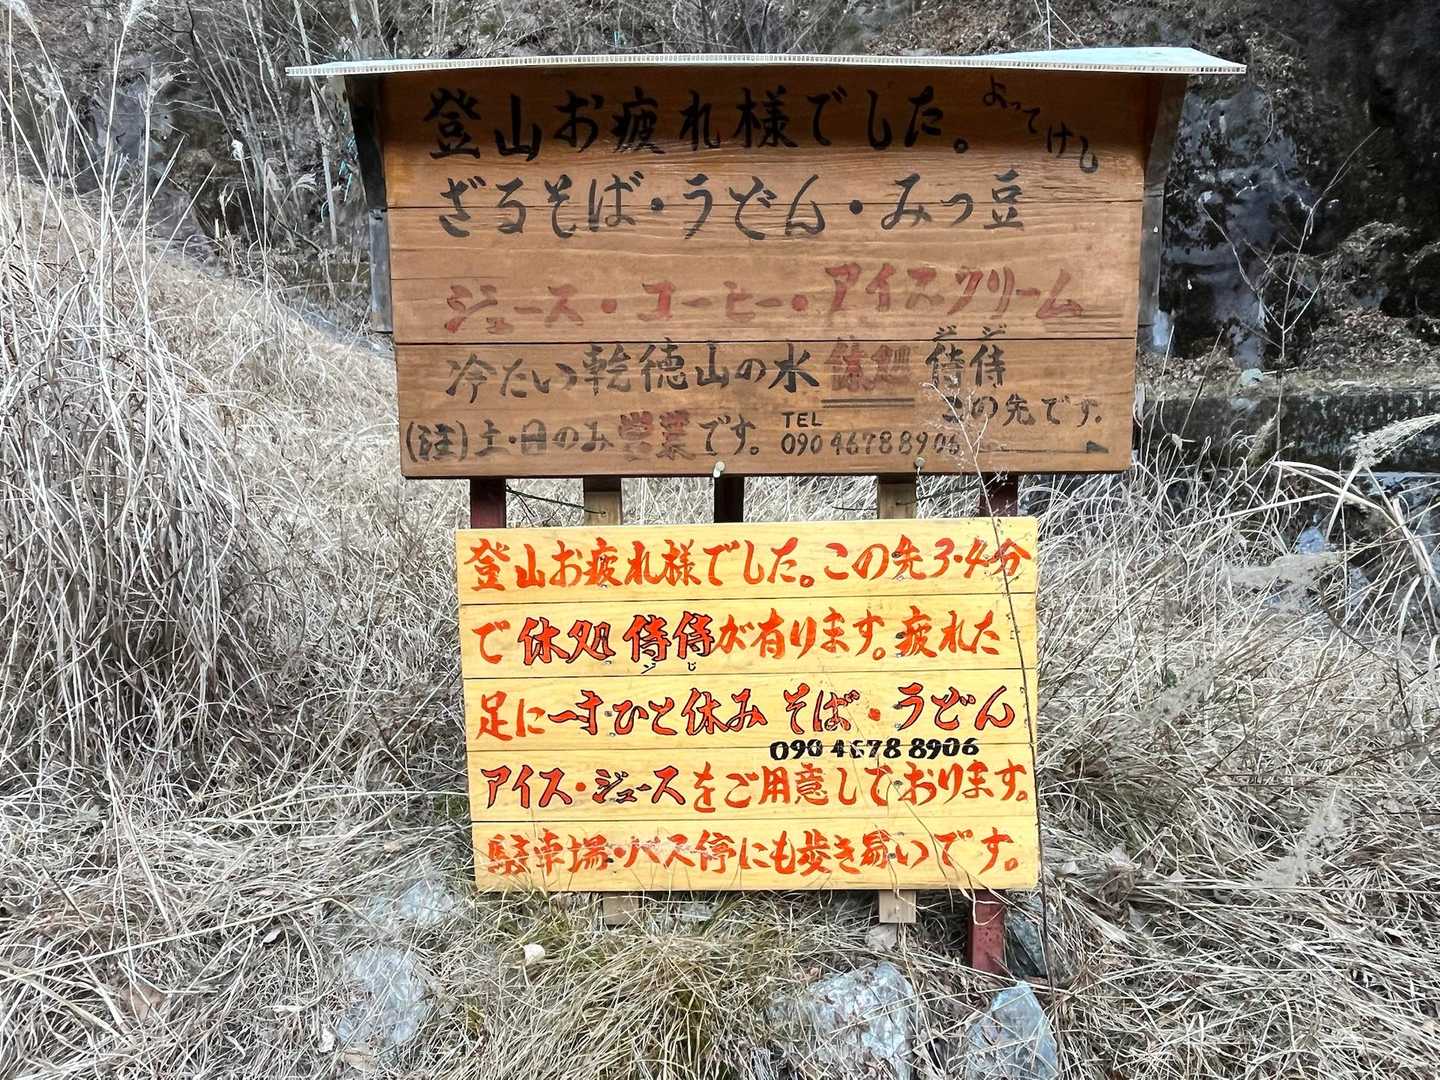 登山お疲れ様でした。よってけし
ざるそば・うどん・みつ豆
ジュース・コーヒー・アイスクリーム
冷たい乾徳山の水 休処 侍侍
ジジ
この先です。
(注)土・日のみ営業です。
TEL
090 4678 8906
登山お疲れ様でした。この先3・4分
で休処 侍侍が有ります。疲れた
ジじ
足に一寸ひと休み そば・うどん
090 4678 8906
アイス・ジュースをご用意しております。
駐車場・バス停にも歩き易いです。